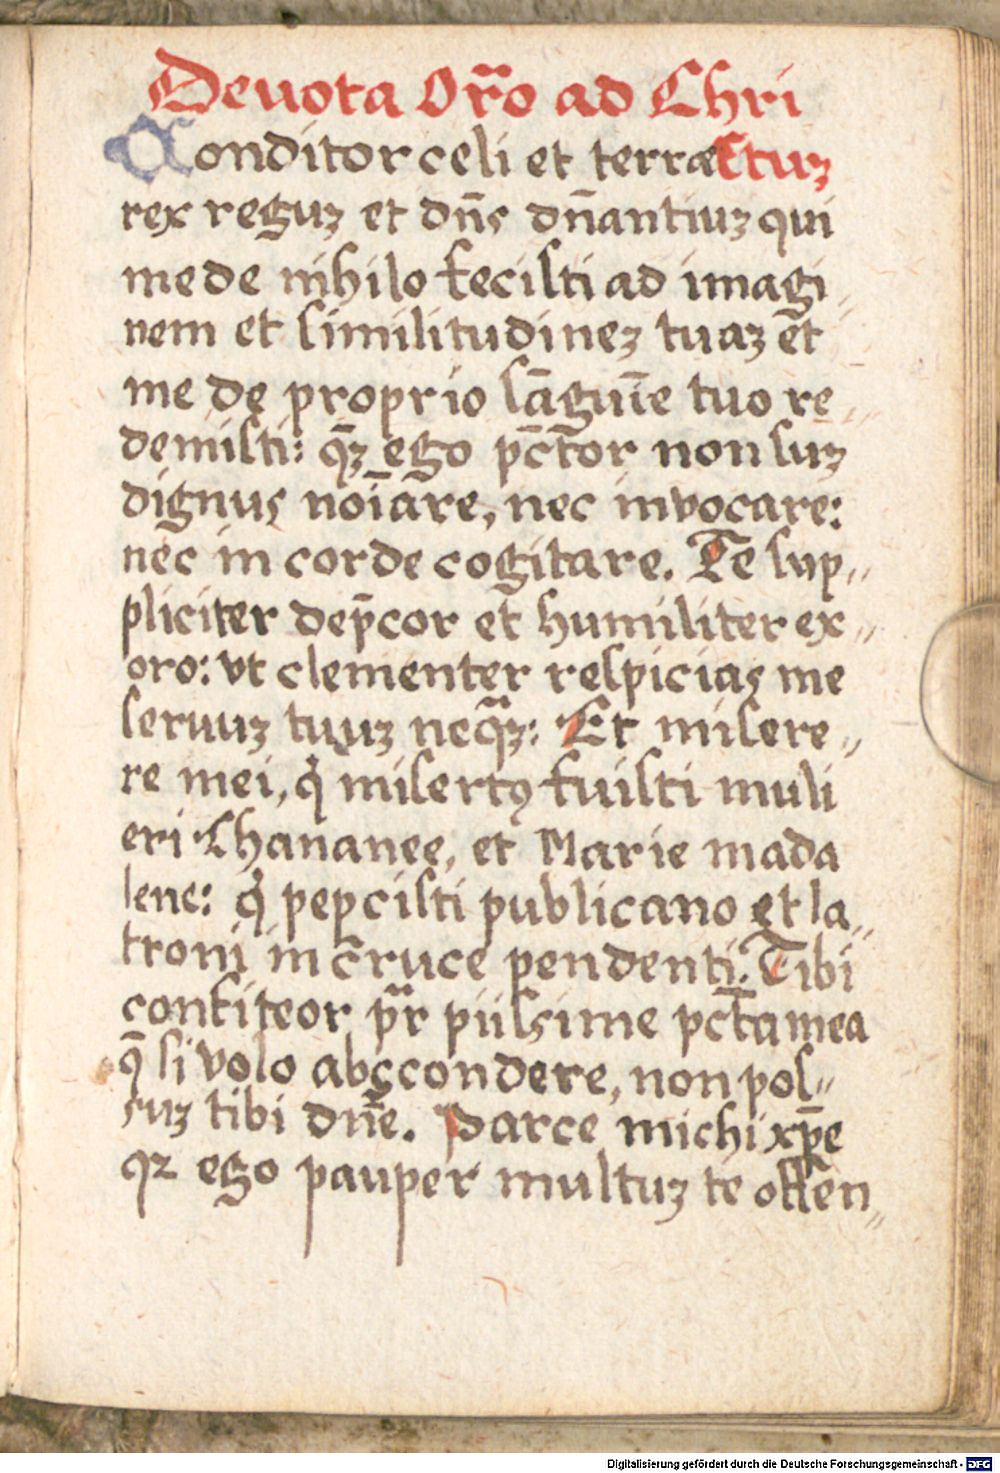 Deuota Or̃o ad Chri
Conditor celi et terræ stuꝫ
rex reguꝫ et dñs dñantiuꝫ qui
me de nihilo fecisti ad imagi
nem et similitudineꝫ tuaꝫ et
me de proprio sāguīe tuo re
demisti: qꝫ̄ ego pc̄tor non suꝫ
dignus noīare, nec invocare:
nec in corde cogitare. Te sup〃
pliciter dep̄cor et humiliter ex〃
oro: vt clementer respicias me
seruuꝫ tuuꝫ neqꝫ̃: Et misere〃
re mei, q̇ misertꝰ fuisti muli
eri Chananee, et Marie mada
lene: q̇ pepcisti publicano et la〃
troni in cruce pendenti. Tibi
confiteor pr̃ piissime pctā mea
q̄ si volo abscondere, non pos〃
suꝫ tibi dñe. Parce michi xp̄e
qꝫ ego pauper multuꝫ te offen〃
Digitalisierung gefördert durch die Deutsche Forschungsgemeinschaft - DFG